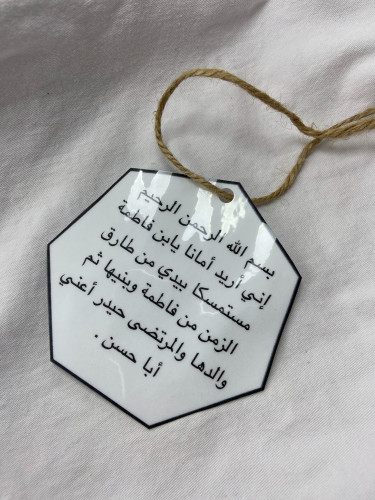 بسم الله الرحمن الرحيم
إني أريد أمانا يابن فاطمة
مستمسكا بيدي من طارق
الزمن من فاطمة وبنيها ثم
والدها والمرتضى حيدر أعني
أبا حسن .